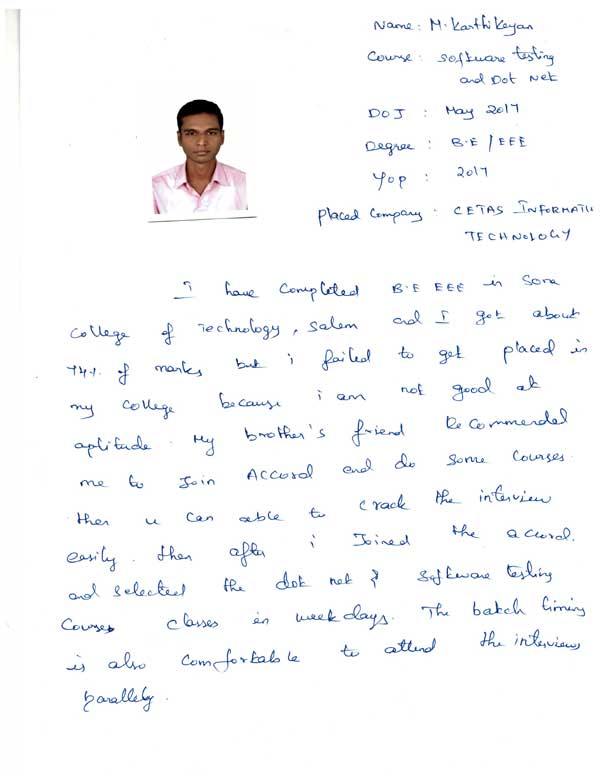 Name: M. Karthikeyan
Course: Software testing
and Dot Net
DOJ : May 2017
Degree : B.E / EEE
Yop : 2017
Placed Company : CETAS INFORMATI
TECHNOLOGY
I have Completed B.E EEE in Sona
College of Technology, Salem and I got about
74% of marks but i failed to get placed in
my college because i am not good at
aptitude. My brother's friend Recommended
me to Join ACCORD and do some Courses.
then u can able to crack the interview
easily. then after i Joined the accord.
and selected the dot net & Software testing
Courses classes in week days. The batch timing
is also comfortable to attend the interviews
parallely.